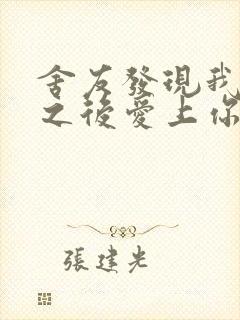 舍友發現我
之後愛上你
張建光